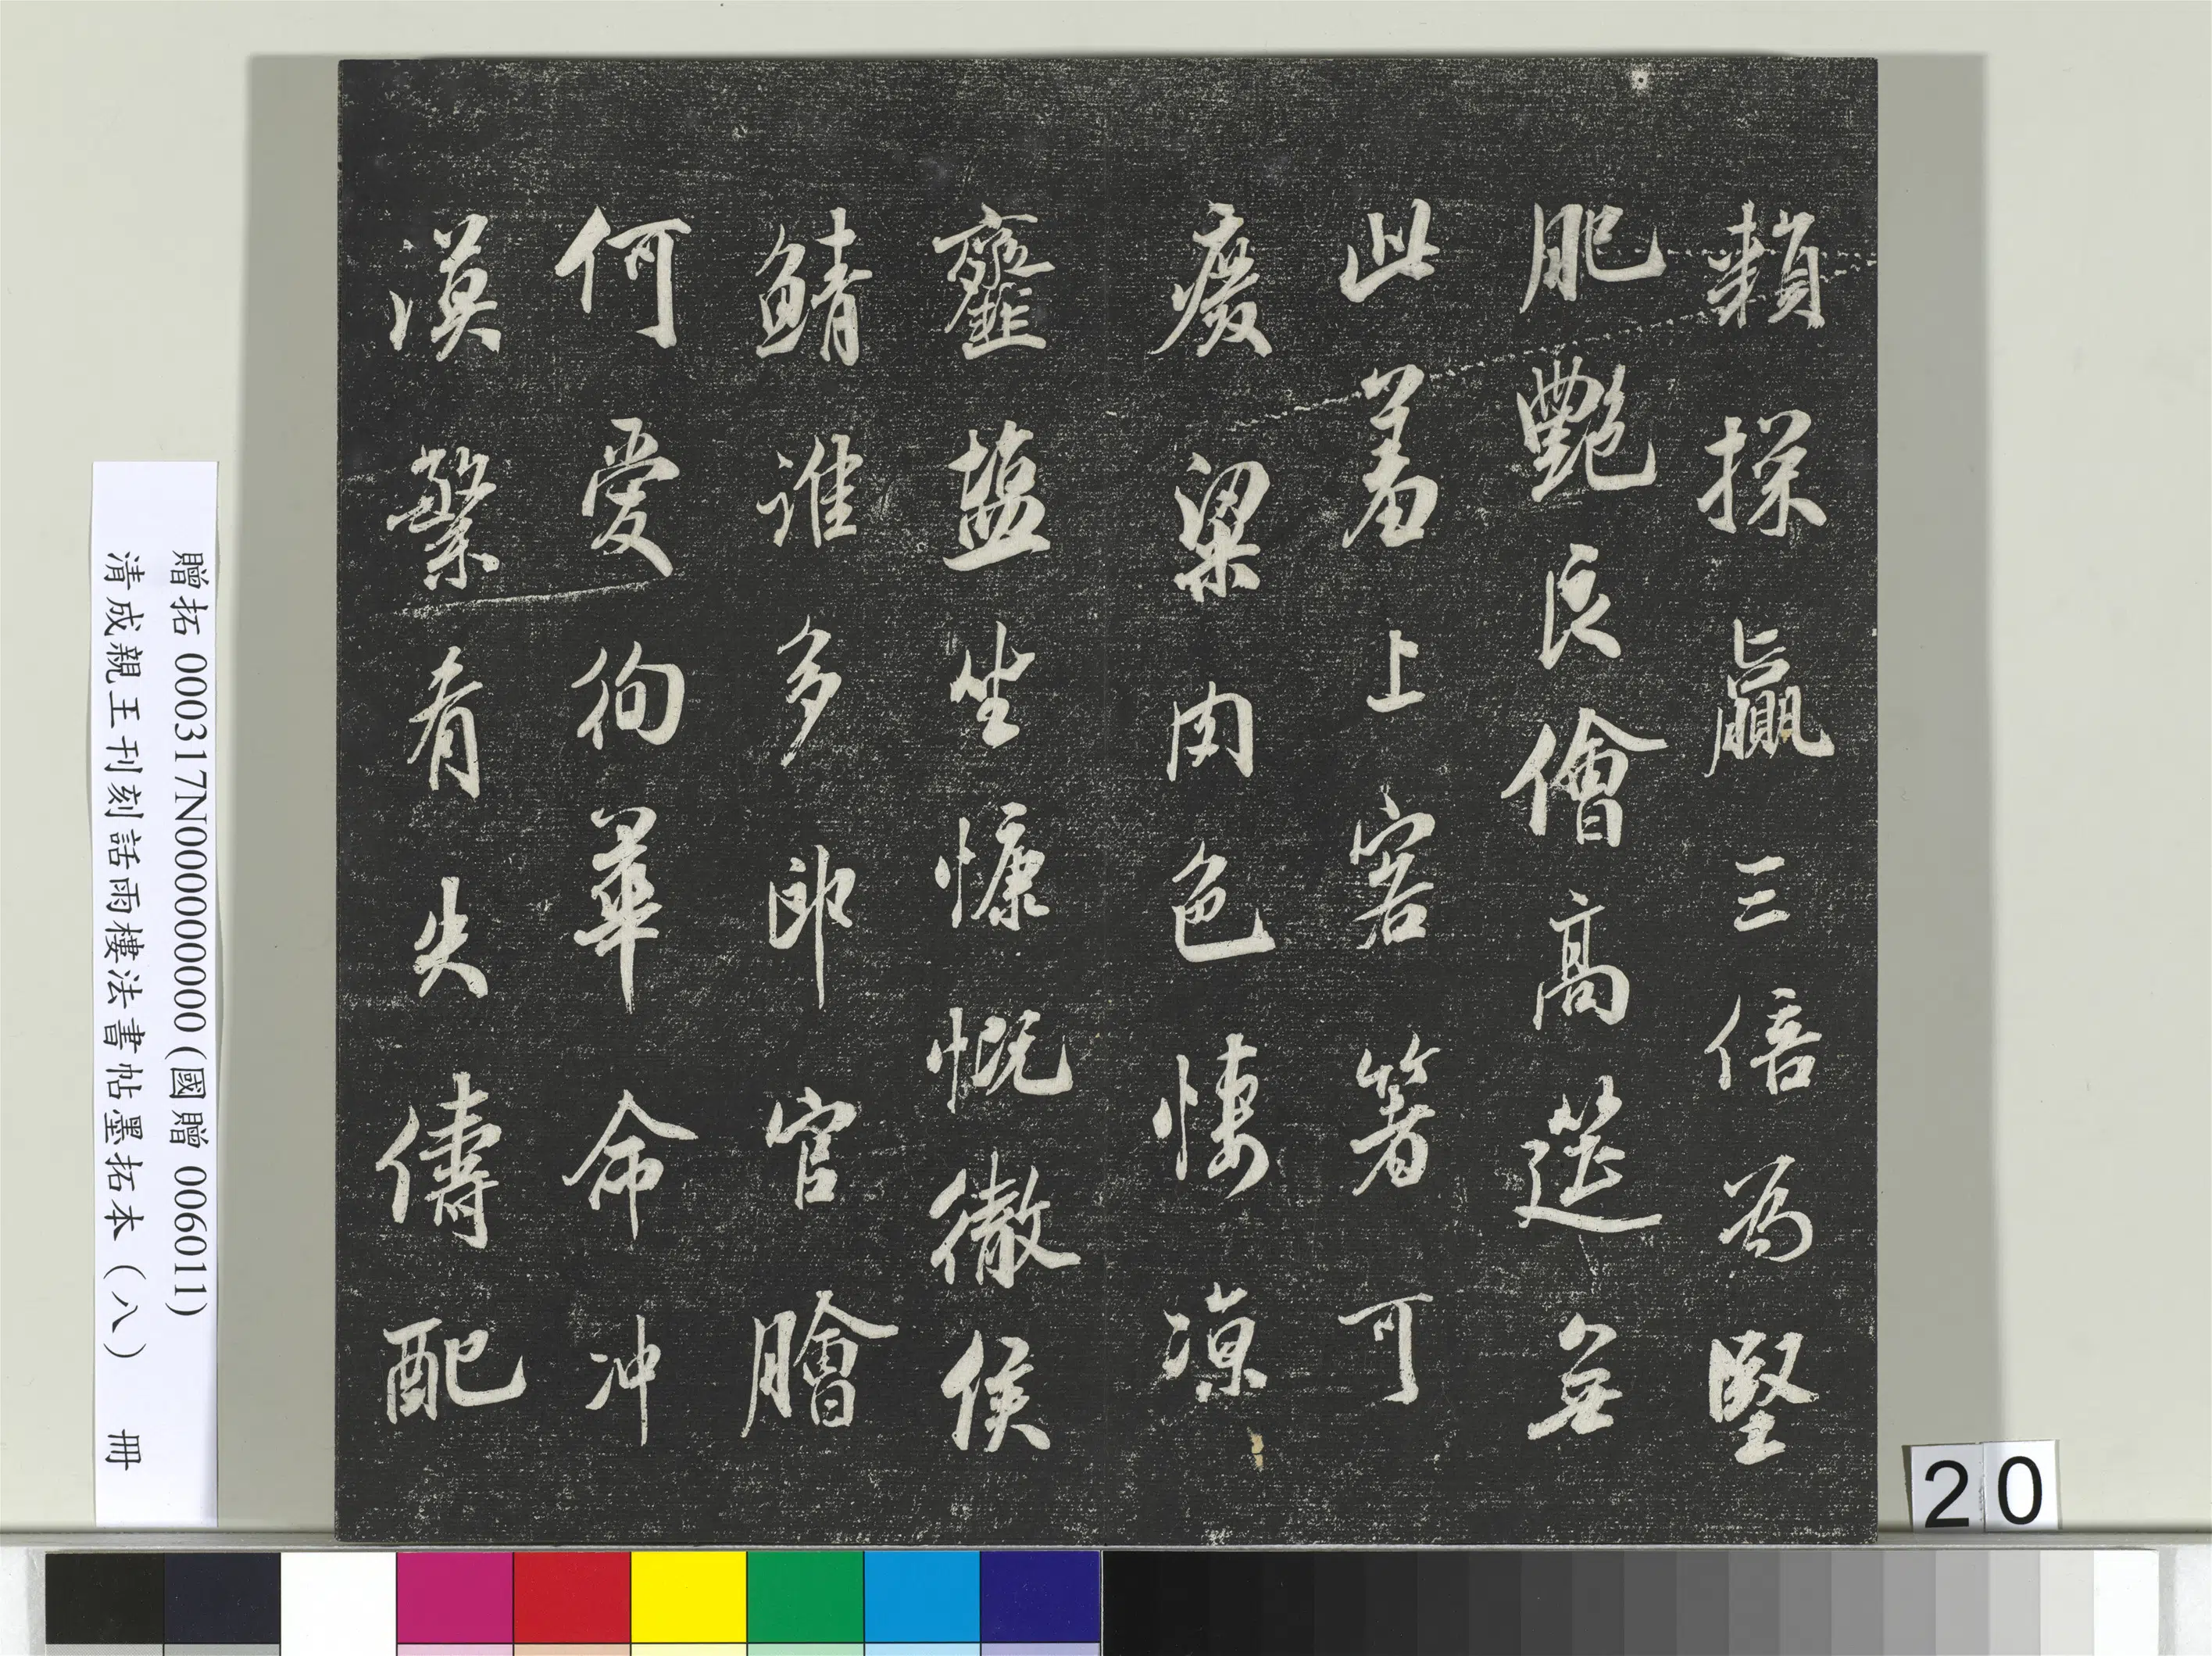 頼採贏三倍為堅
肥艷良儈高筵無
此羞上客箸可
廢粱肉色悽凉
齏塩坐慷慨徹侯
鯖誰多郎官膾
何愛徇華命冲
漠繄肴失儔配
贈拓 000317N000000000 (國贈 006011)
清成親王刊刻話雨樓法書帖墨拓本（八） 冊
20